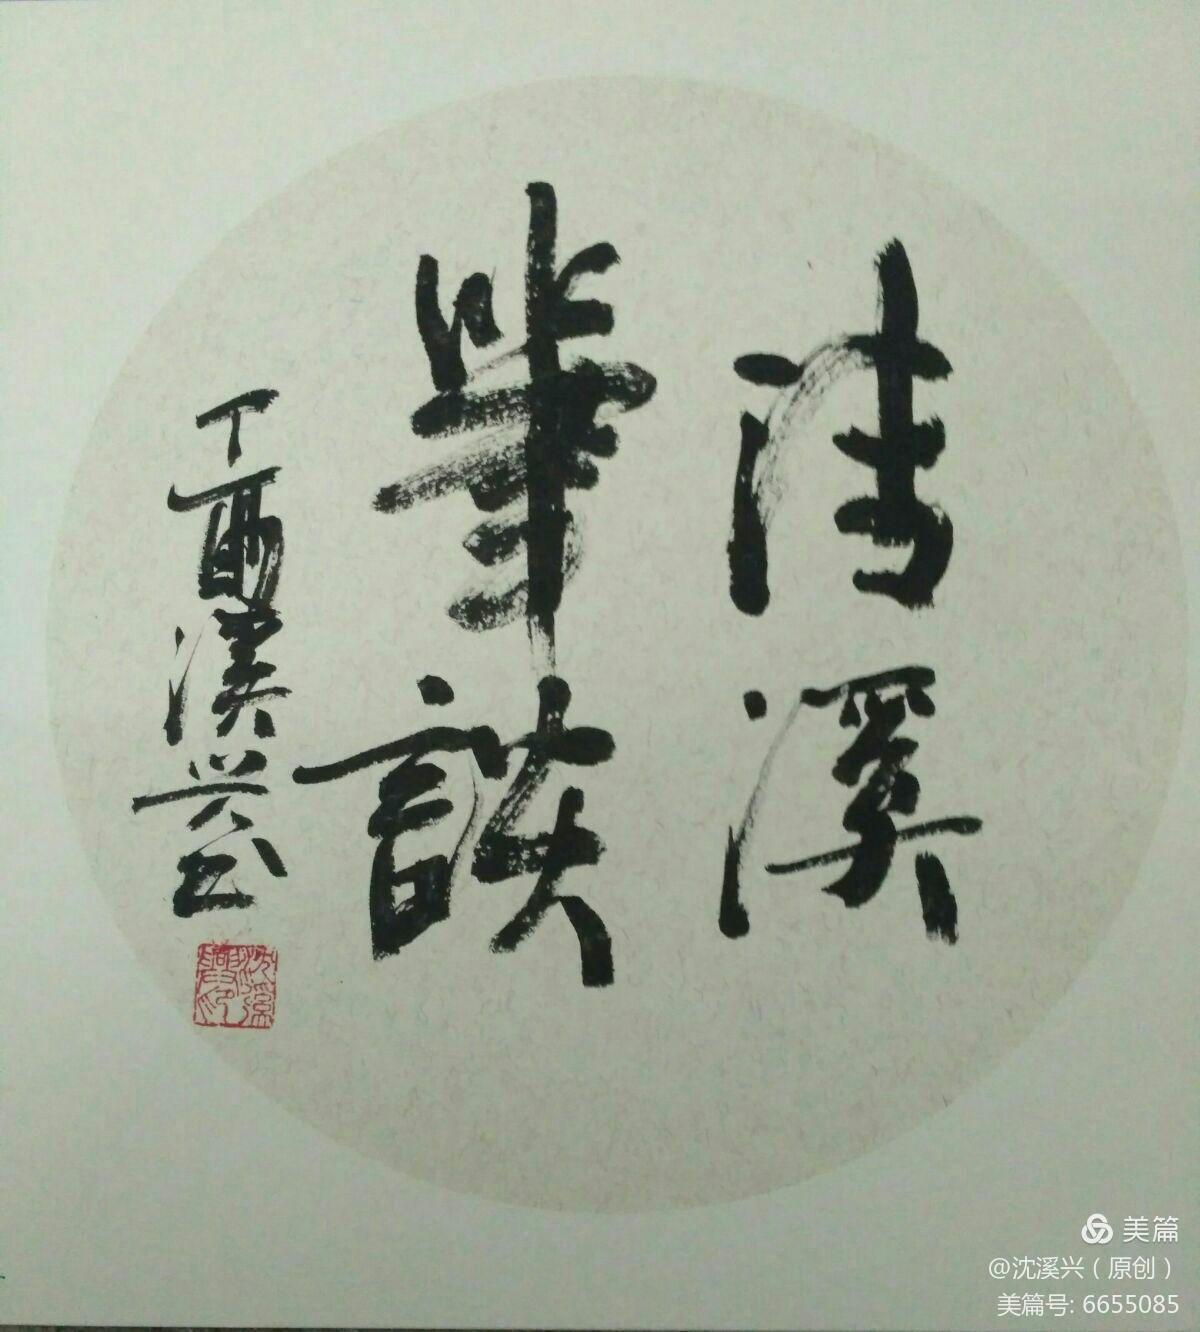 清溪
筆談
丁酉溪兴
美篇
@沈溪兴（原创）
美篇号: 6655085